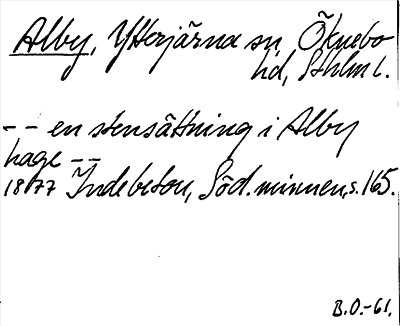 Alby, Ytterjärna sn, Öknebo
hd, Sthlm l.
-- en stensättning i Alby
hage --
1877 Indebetou, Söd. minnen, s. 165.
B.O.-61.